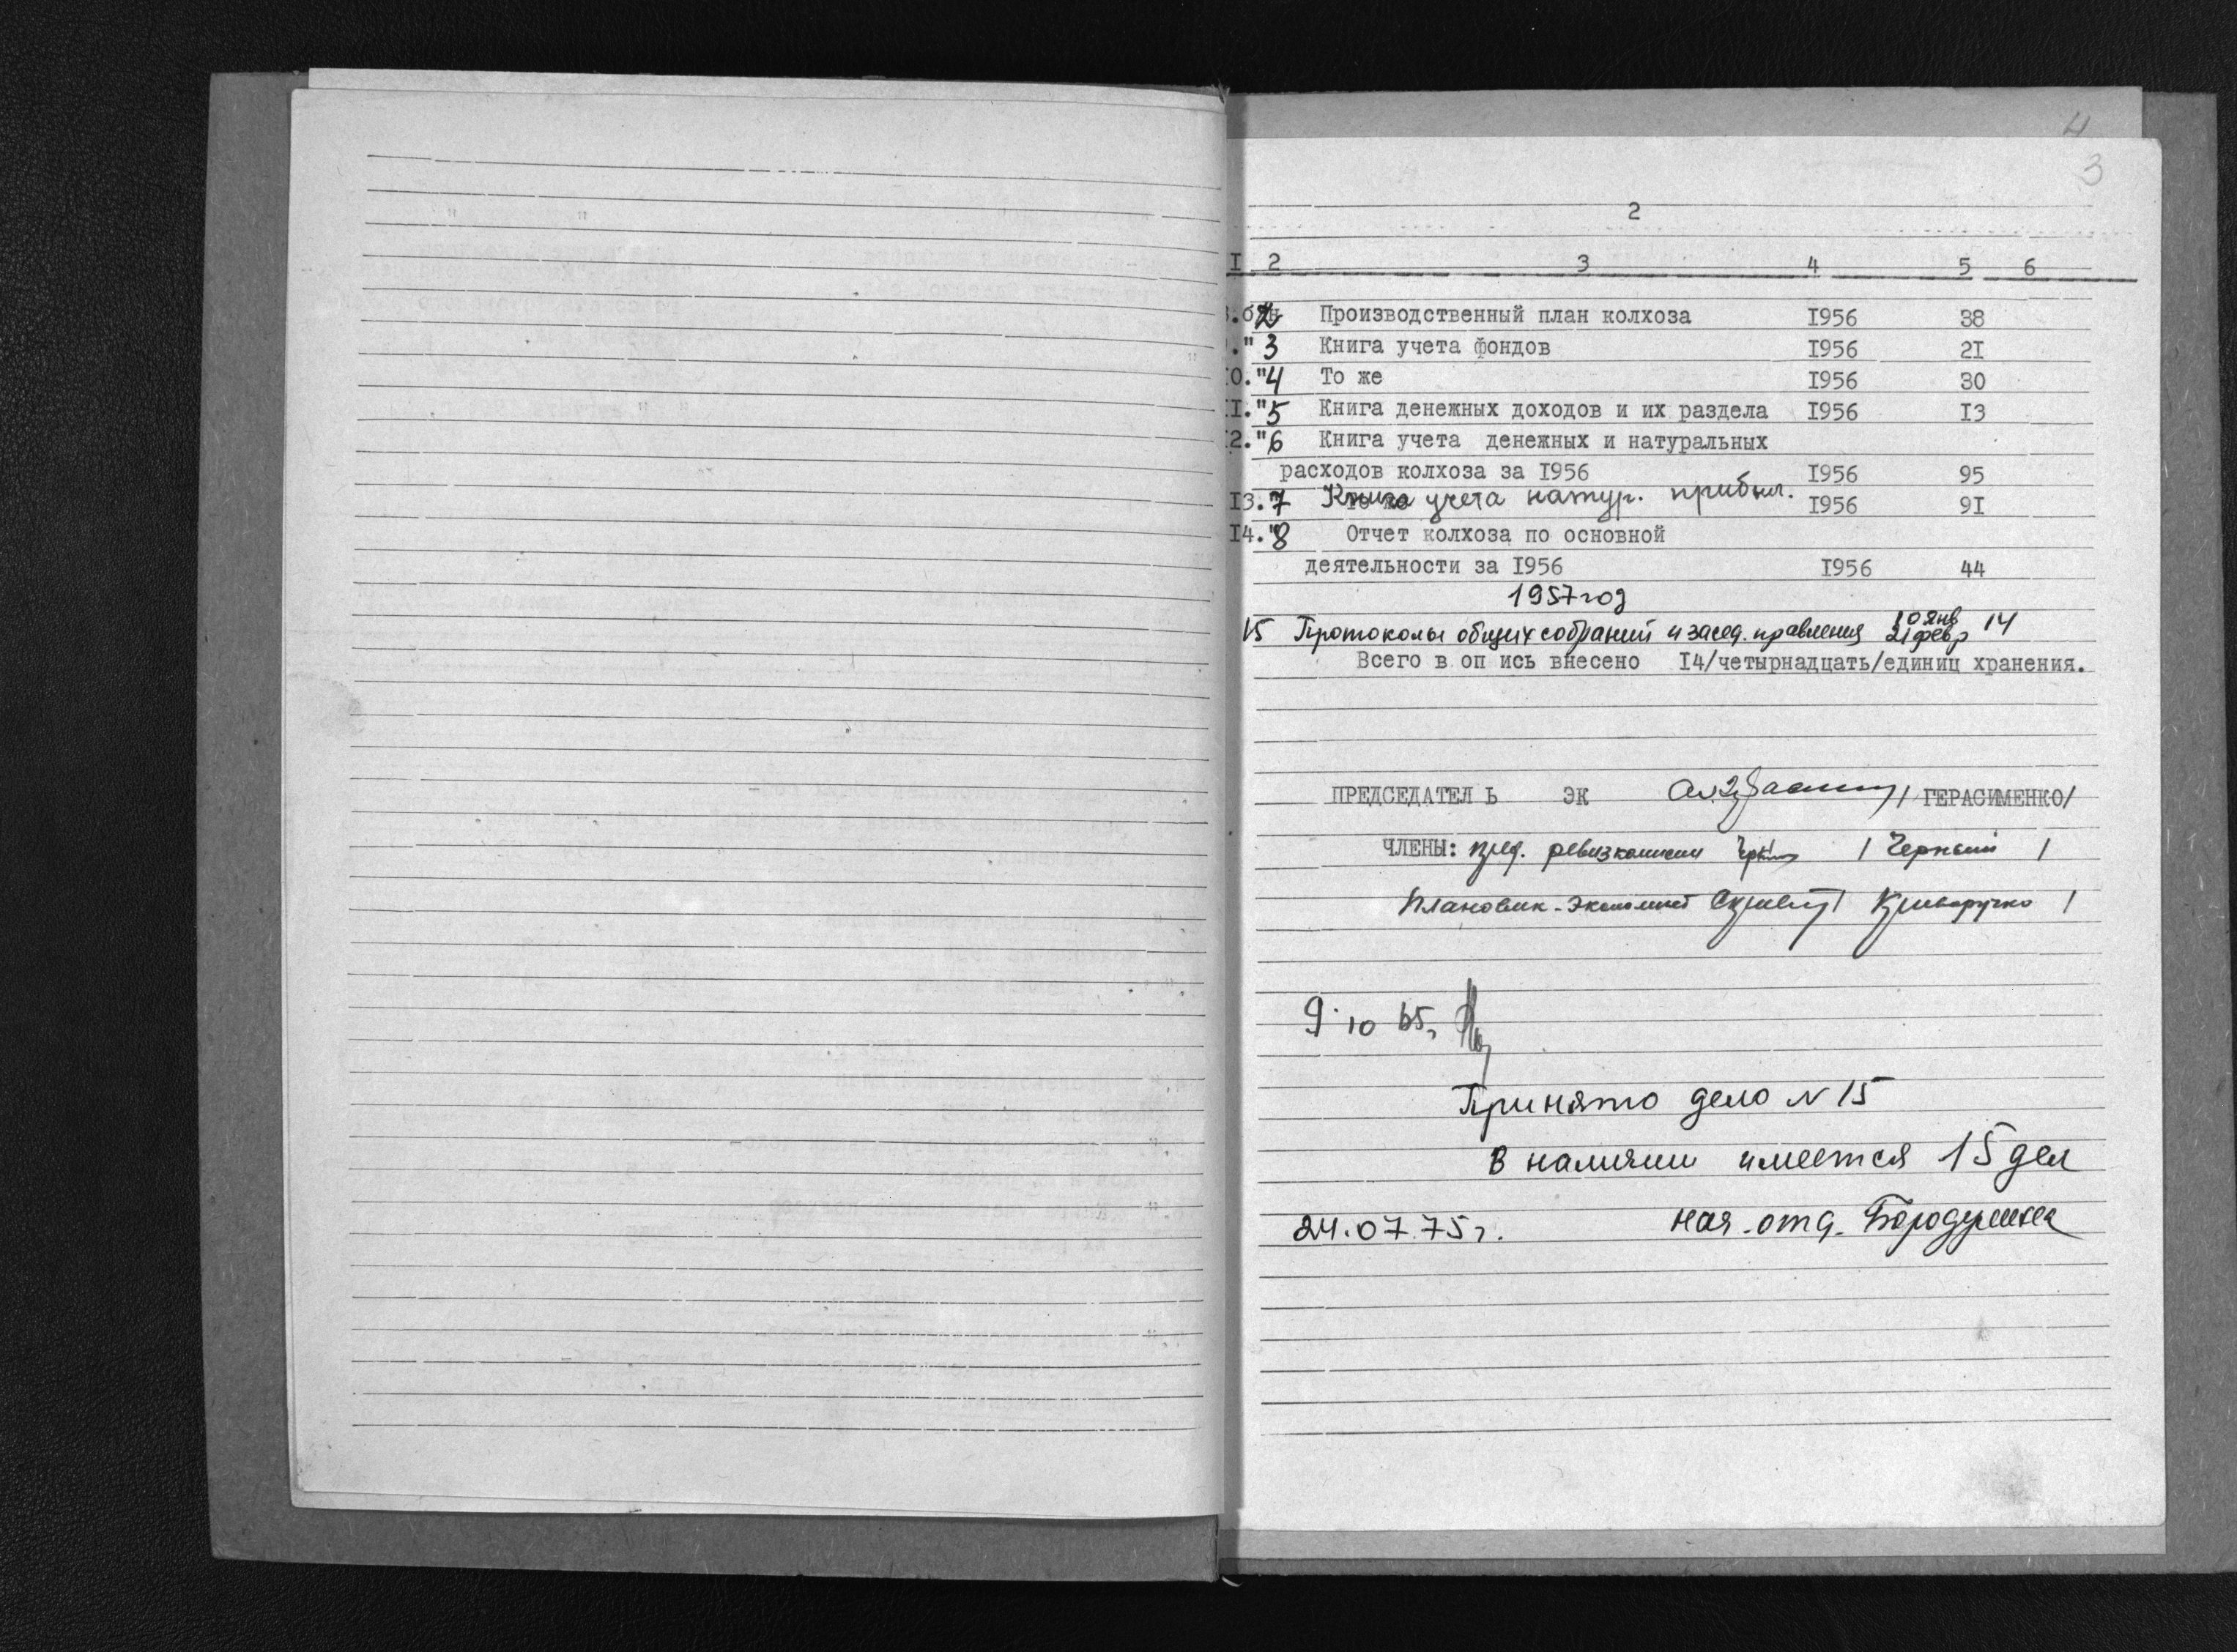 4
3
2
I 2 3 4 5 6
2 Производственный план колхоза I956 38
." 3 Книга учета фондов I956 2I
I0." 4 То же I956 30
II." 5 Книга денежных доходов и их раздела I956 I3
I2." 6 Книга учета денежных и натуральных
расходов колхоза за I956 I956 95
I3. 7 Книга учета натур. прибыл. I956 9I
I4." 8 Отчет колхоза по основной
деятельности за I956 I956 44
1957 год
15 Протоколы общих собраний и засед. правления 10 янв 21 февр 14
Всего в оп ись внесено I4/четырнадцать/единиц хранения.
ПРЕДСЕДАТЕЛ Ь ЭК / ГЕРАСИМЕНКО/
ЧЛЕНЫ: пред. ревизкомисии / Черный /
Плановик-экономист / Криворучко /
9 10 65г
Принято дело N 15
В наличии имеется 15 дел
24.07.75г. нач. отд.